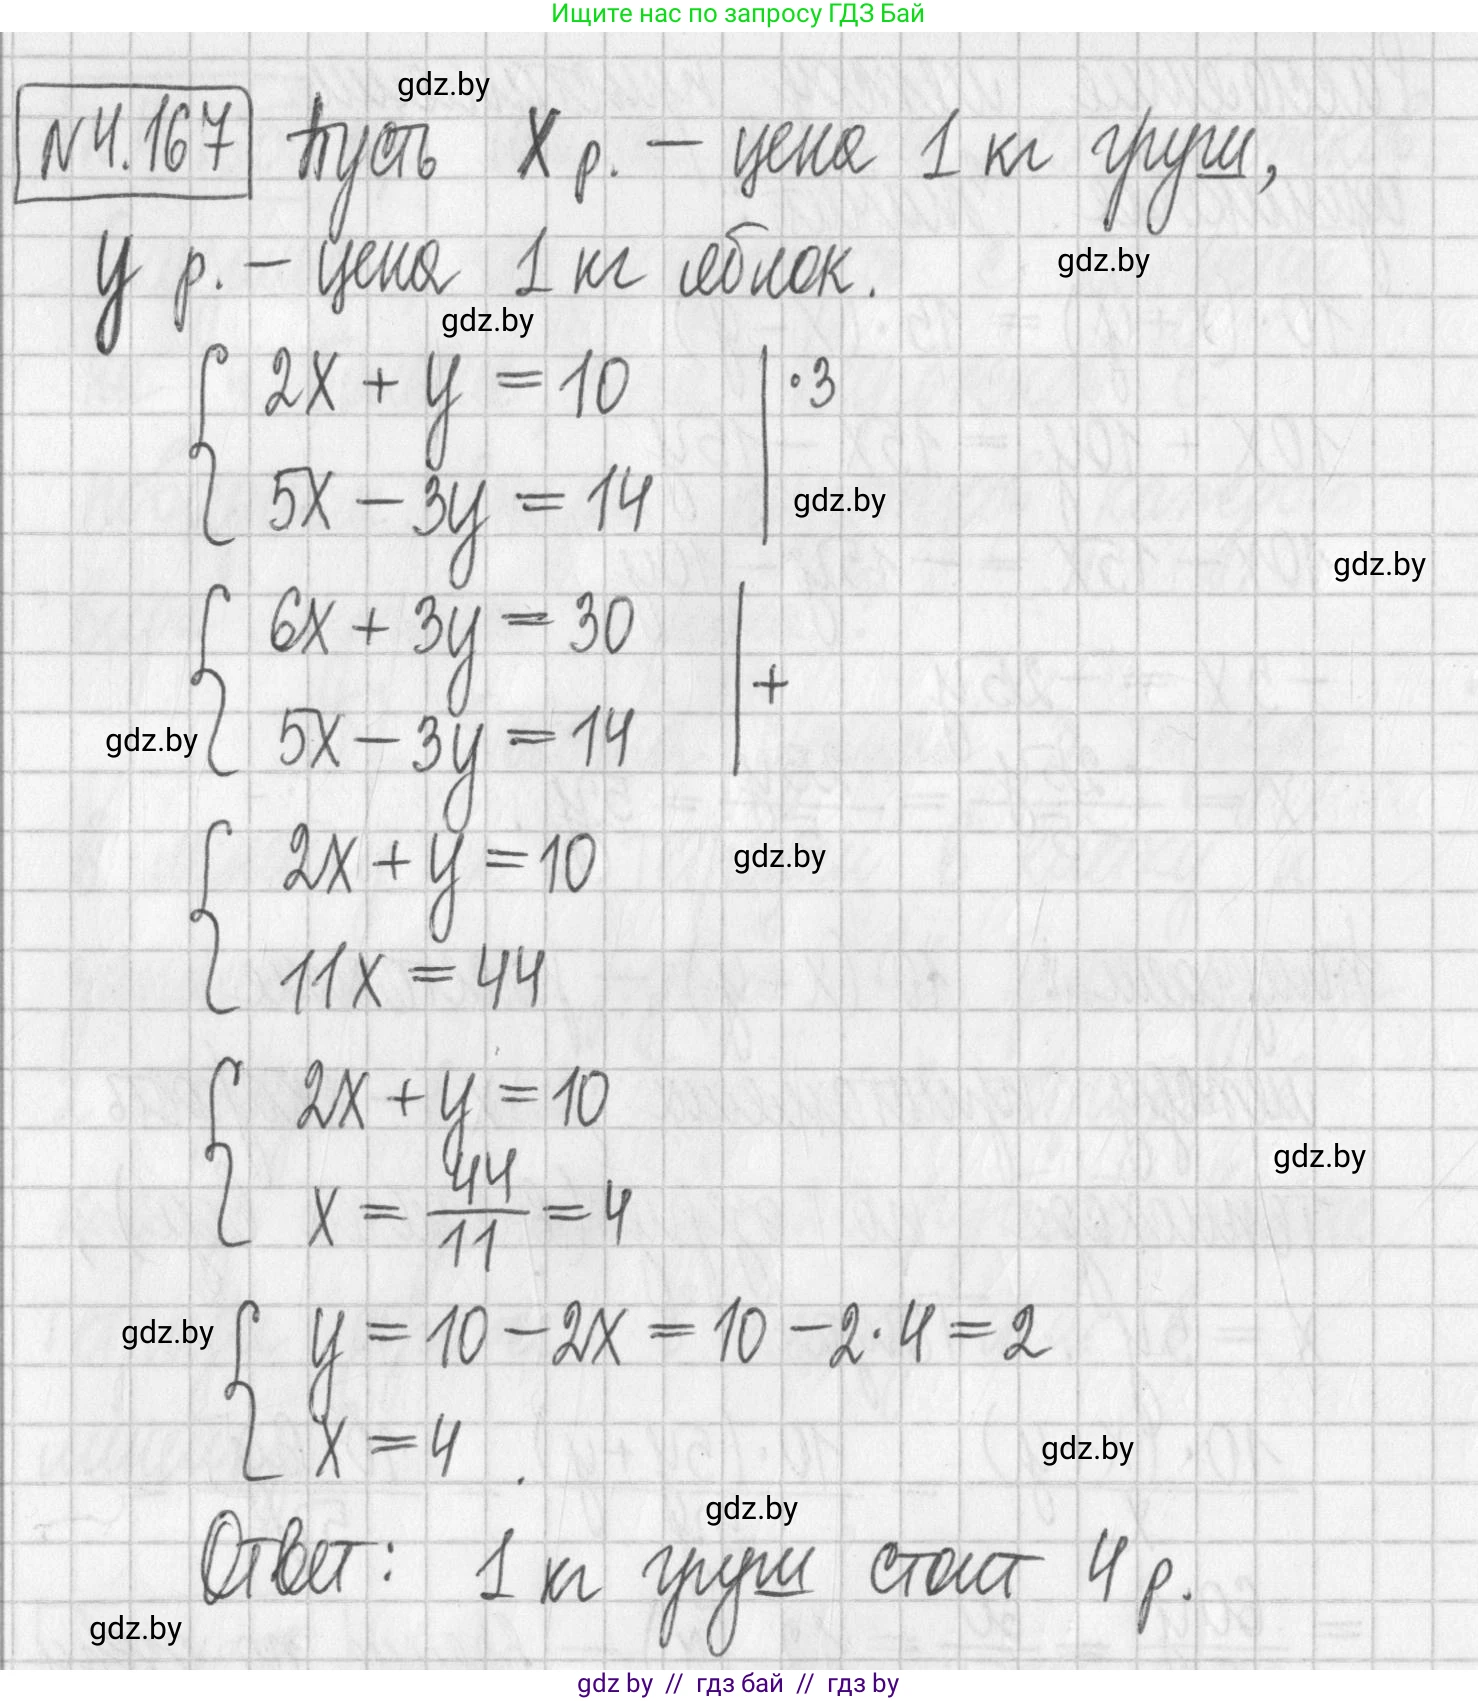 Ищите нас по запросу ГДЗ Бай
gdz.by
№4.167 Пусть x р. – цена 1 кг груш,
y р. – цена 1 кг яблок.
gdz.by
gdz.by
2x + y = 10 | ·3
5x – 3y = 14
gdz.by
gdz.by
6x + 3y = 30
+
5x – 3y = 14
gdz.by
2x + y = 10
gdz.by
11x = 44
2x + y = 10
gdz.by
x = 44/11 = 4
gdz.by
y = 10 – 2x = 10 – 2·4 = 2
x = 4.
gdz.by
gdz.by
Ответ: 1 кг груш стоит 4 р.
gdz.by
gdz by // гдз бай // гдз by